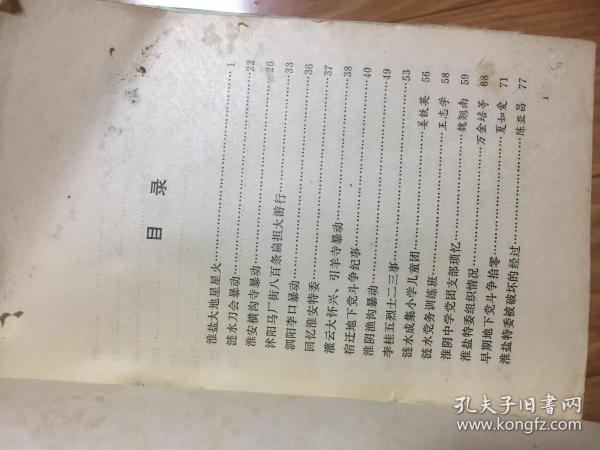 目录
淮盐大地星星火……1
涟水刀会暴动……22
淮安横沟寺暴动……26
沭阳马厂街八百条扁担大游行……33
泗阳李口暴动……36
回忆淮安特委……37
灌云大怀兴、引羊寺暴动……38
宿迁地下党斗争纪事……40
淮阴渔沟暴动……49
李桂五烈士二三事……53
涟水成集小学儿童团……姜铁英 56
涟水党务训练班……王志学 58
淮阴中学党团支部琐忆……魏翘南 59
淮盐特委组织情况……万金培等 68
早期地下党斗争拾零……夏如爱 71
淮盐特委被破坏的经过……陈亚昌 77
1
孔夫子旧书网
www.kongfz.com